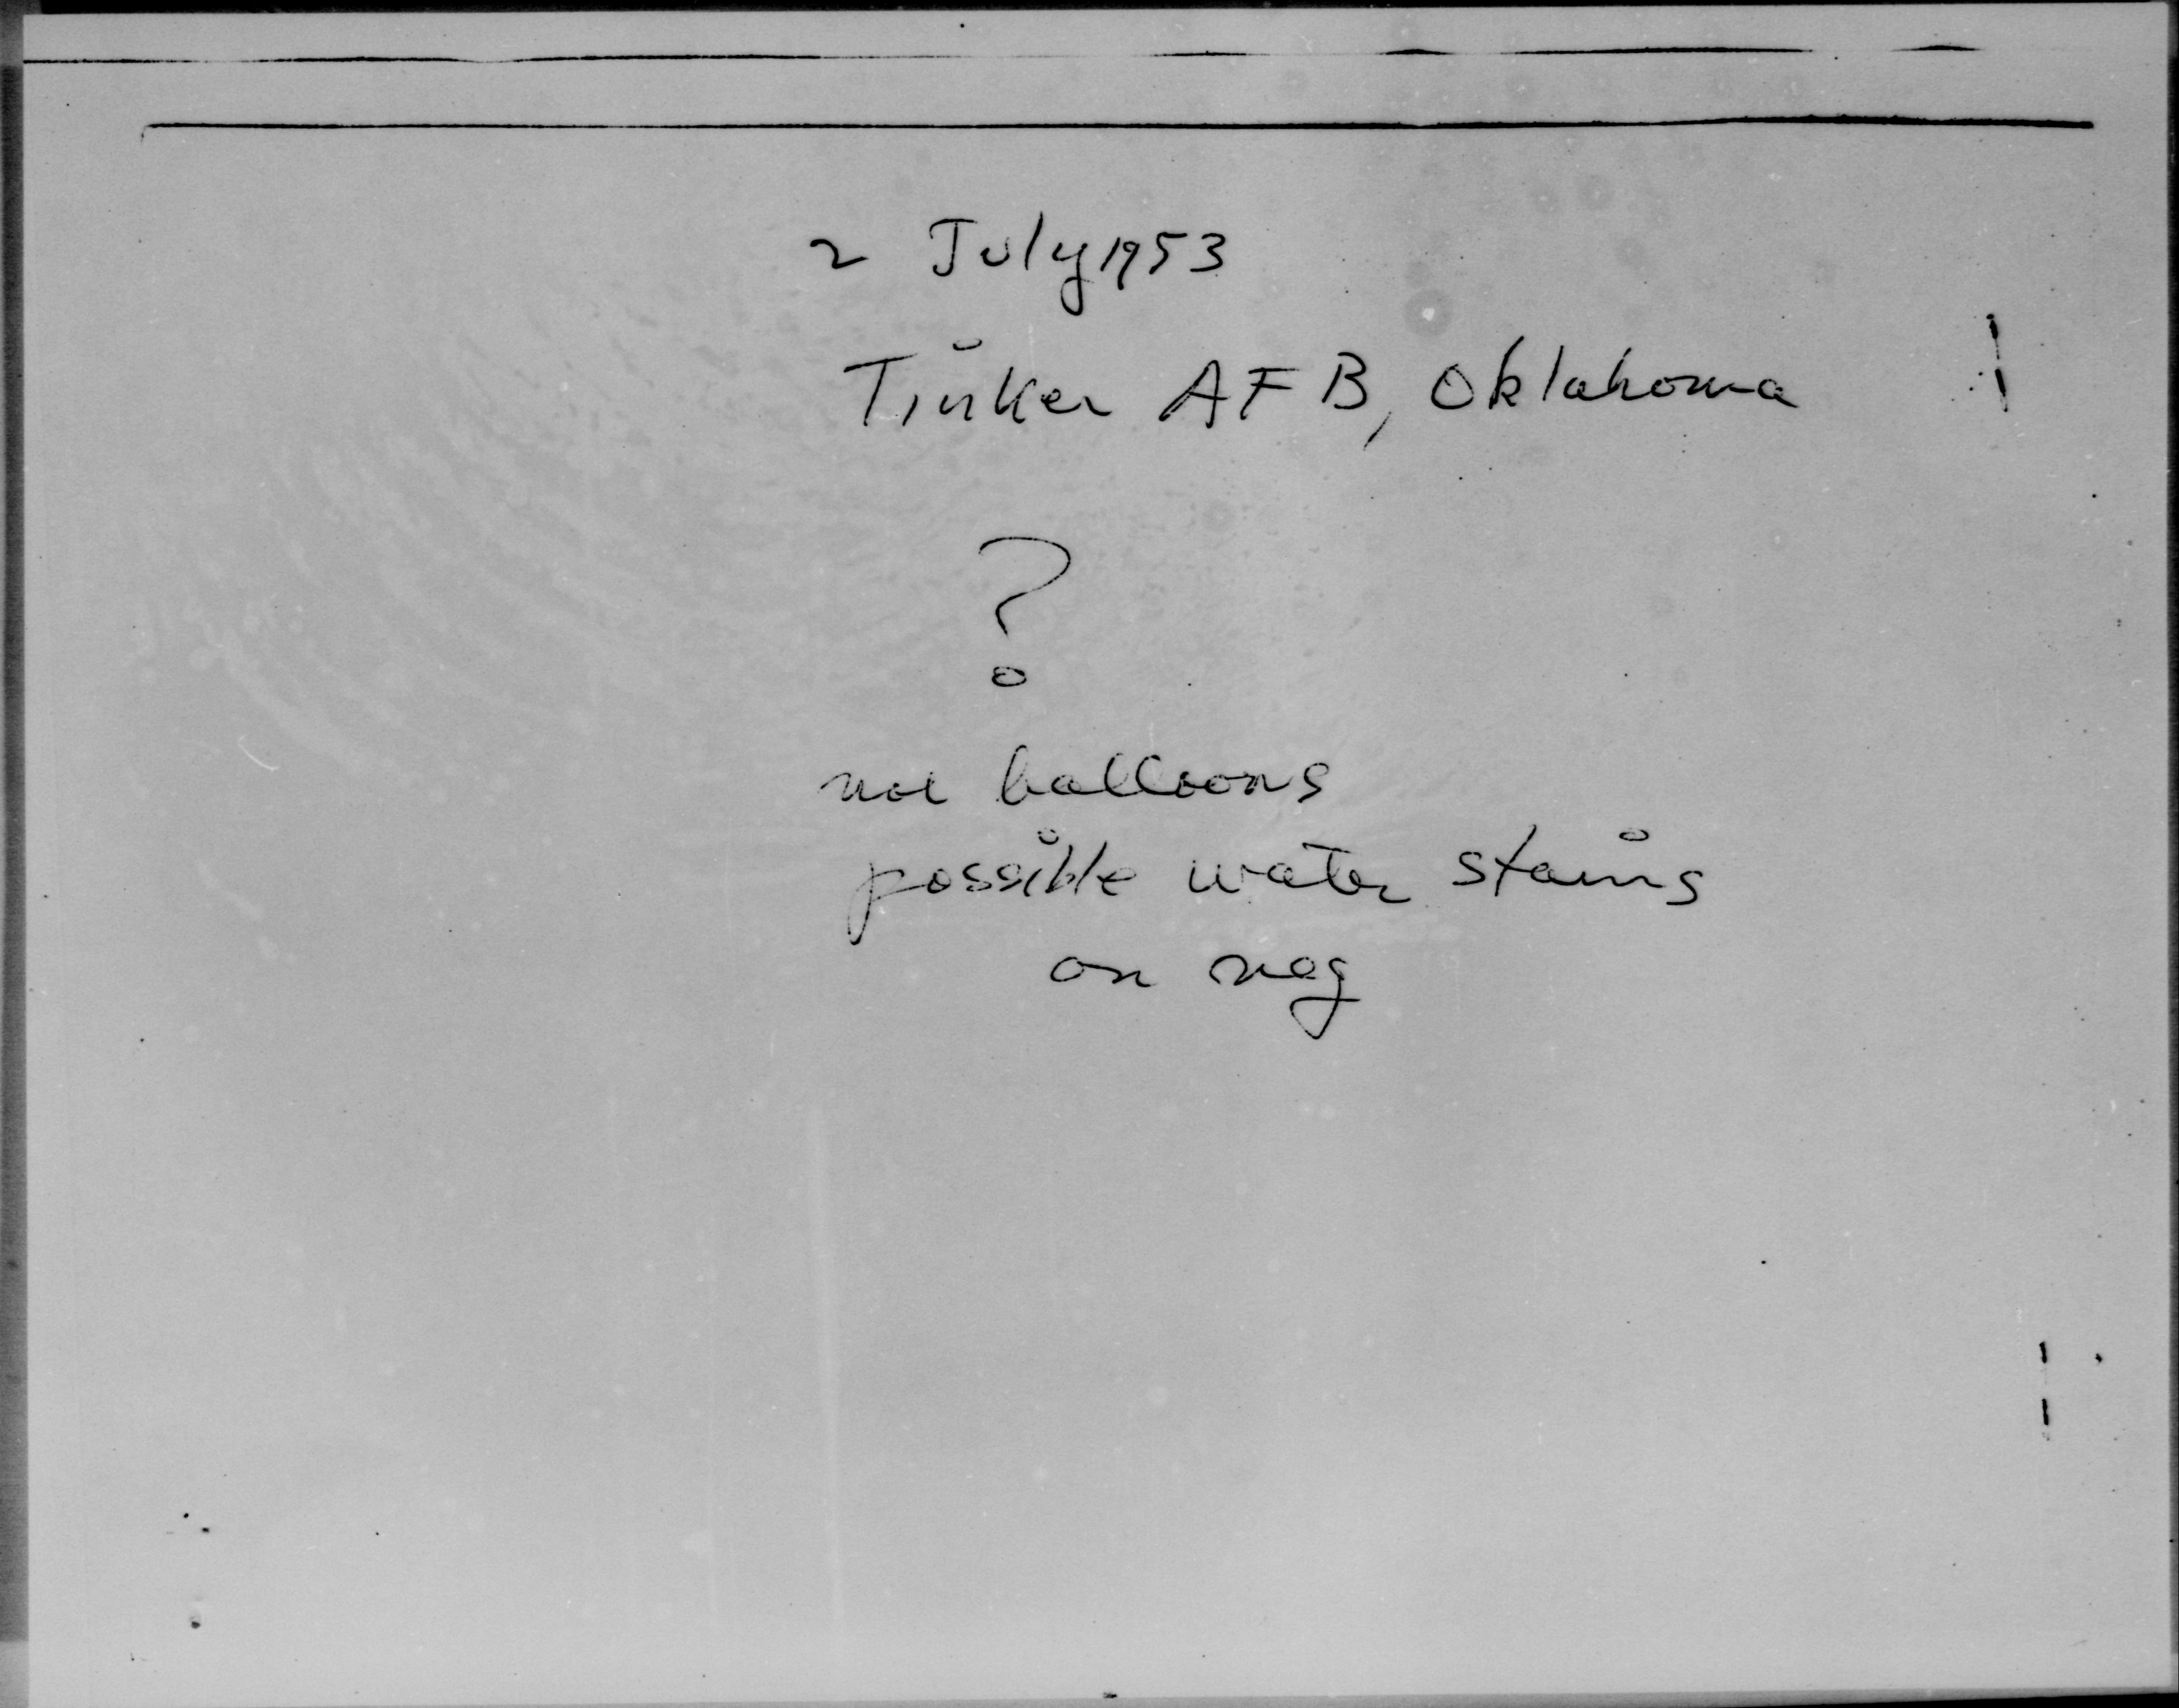 2 July 1953
Tinker AFB, Oklahoma
?
not balloons
possible water stains
on neg